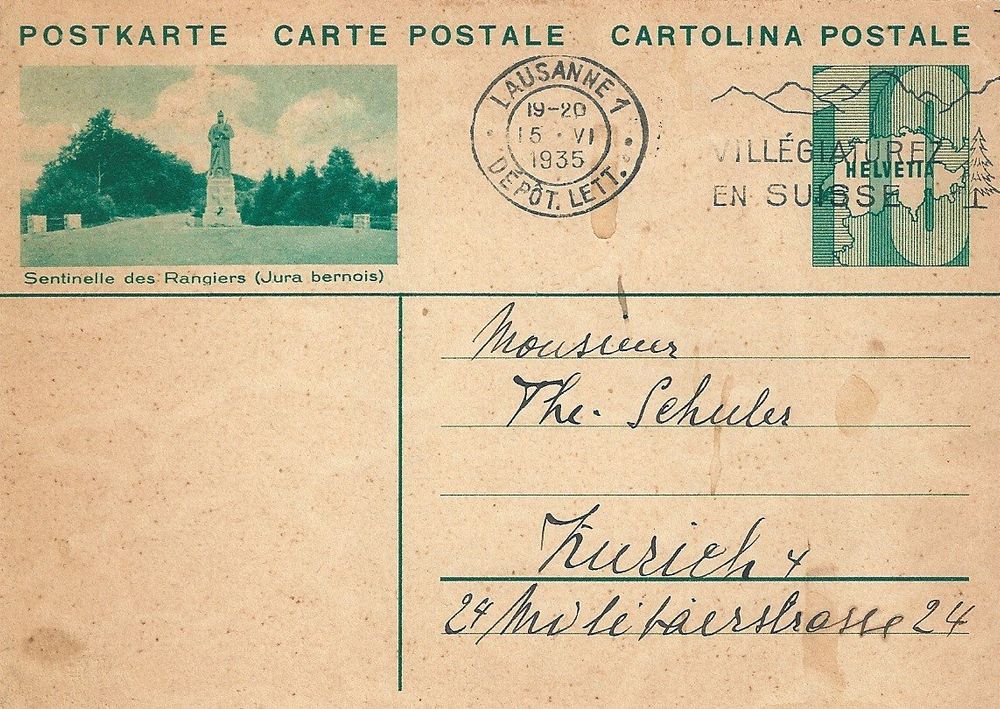 POSTKARTE CARTE POSTALE CARTOLINA POSTALE
LAUSANNE 1
19-20
15 · VI
1935
DÉPÔT. LETT.
VILLÉGIATUREZ
EN SUISSE
10
HELVETIA
Sentinelle des Rangiers (Jura bernois)
Monsieur
The. Schuler
Zurich 4
24 Militaerstrasse 24